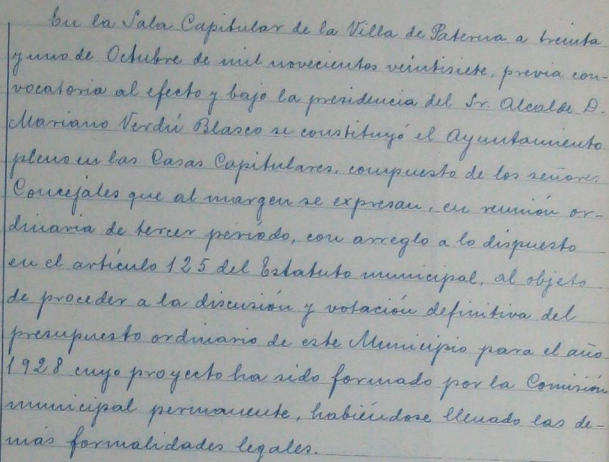 En la Sala Capitular de la Villa de Paterna a treinta
y uno de Octubre de mil novecientos veintisiete, previa con-
vocatoria al efecto y bajo la presidencia del Sr. Alcalde D.
Mariano Verdú Blasco se constituyó el Ayuntamiento
pleno en las Casas Capitulares, compuesto de los señores
Concejales que al margen se expresan, en reunión or-
dinaria de tercer período, con arreglo a lo dispuesto
en el artículo 125 del Estatuto municipal, al objeto
de proceder a la discusión y votación definitiva del
presupuesto ordinario de este Municipio para el año
1928 cuyo proyecto ha sido formado por la Comisión
municipal permanente, habiéndose llenado las de-
más formalidades legales.